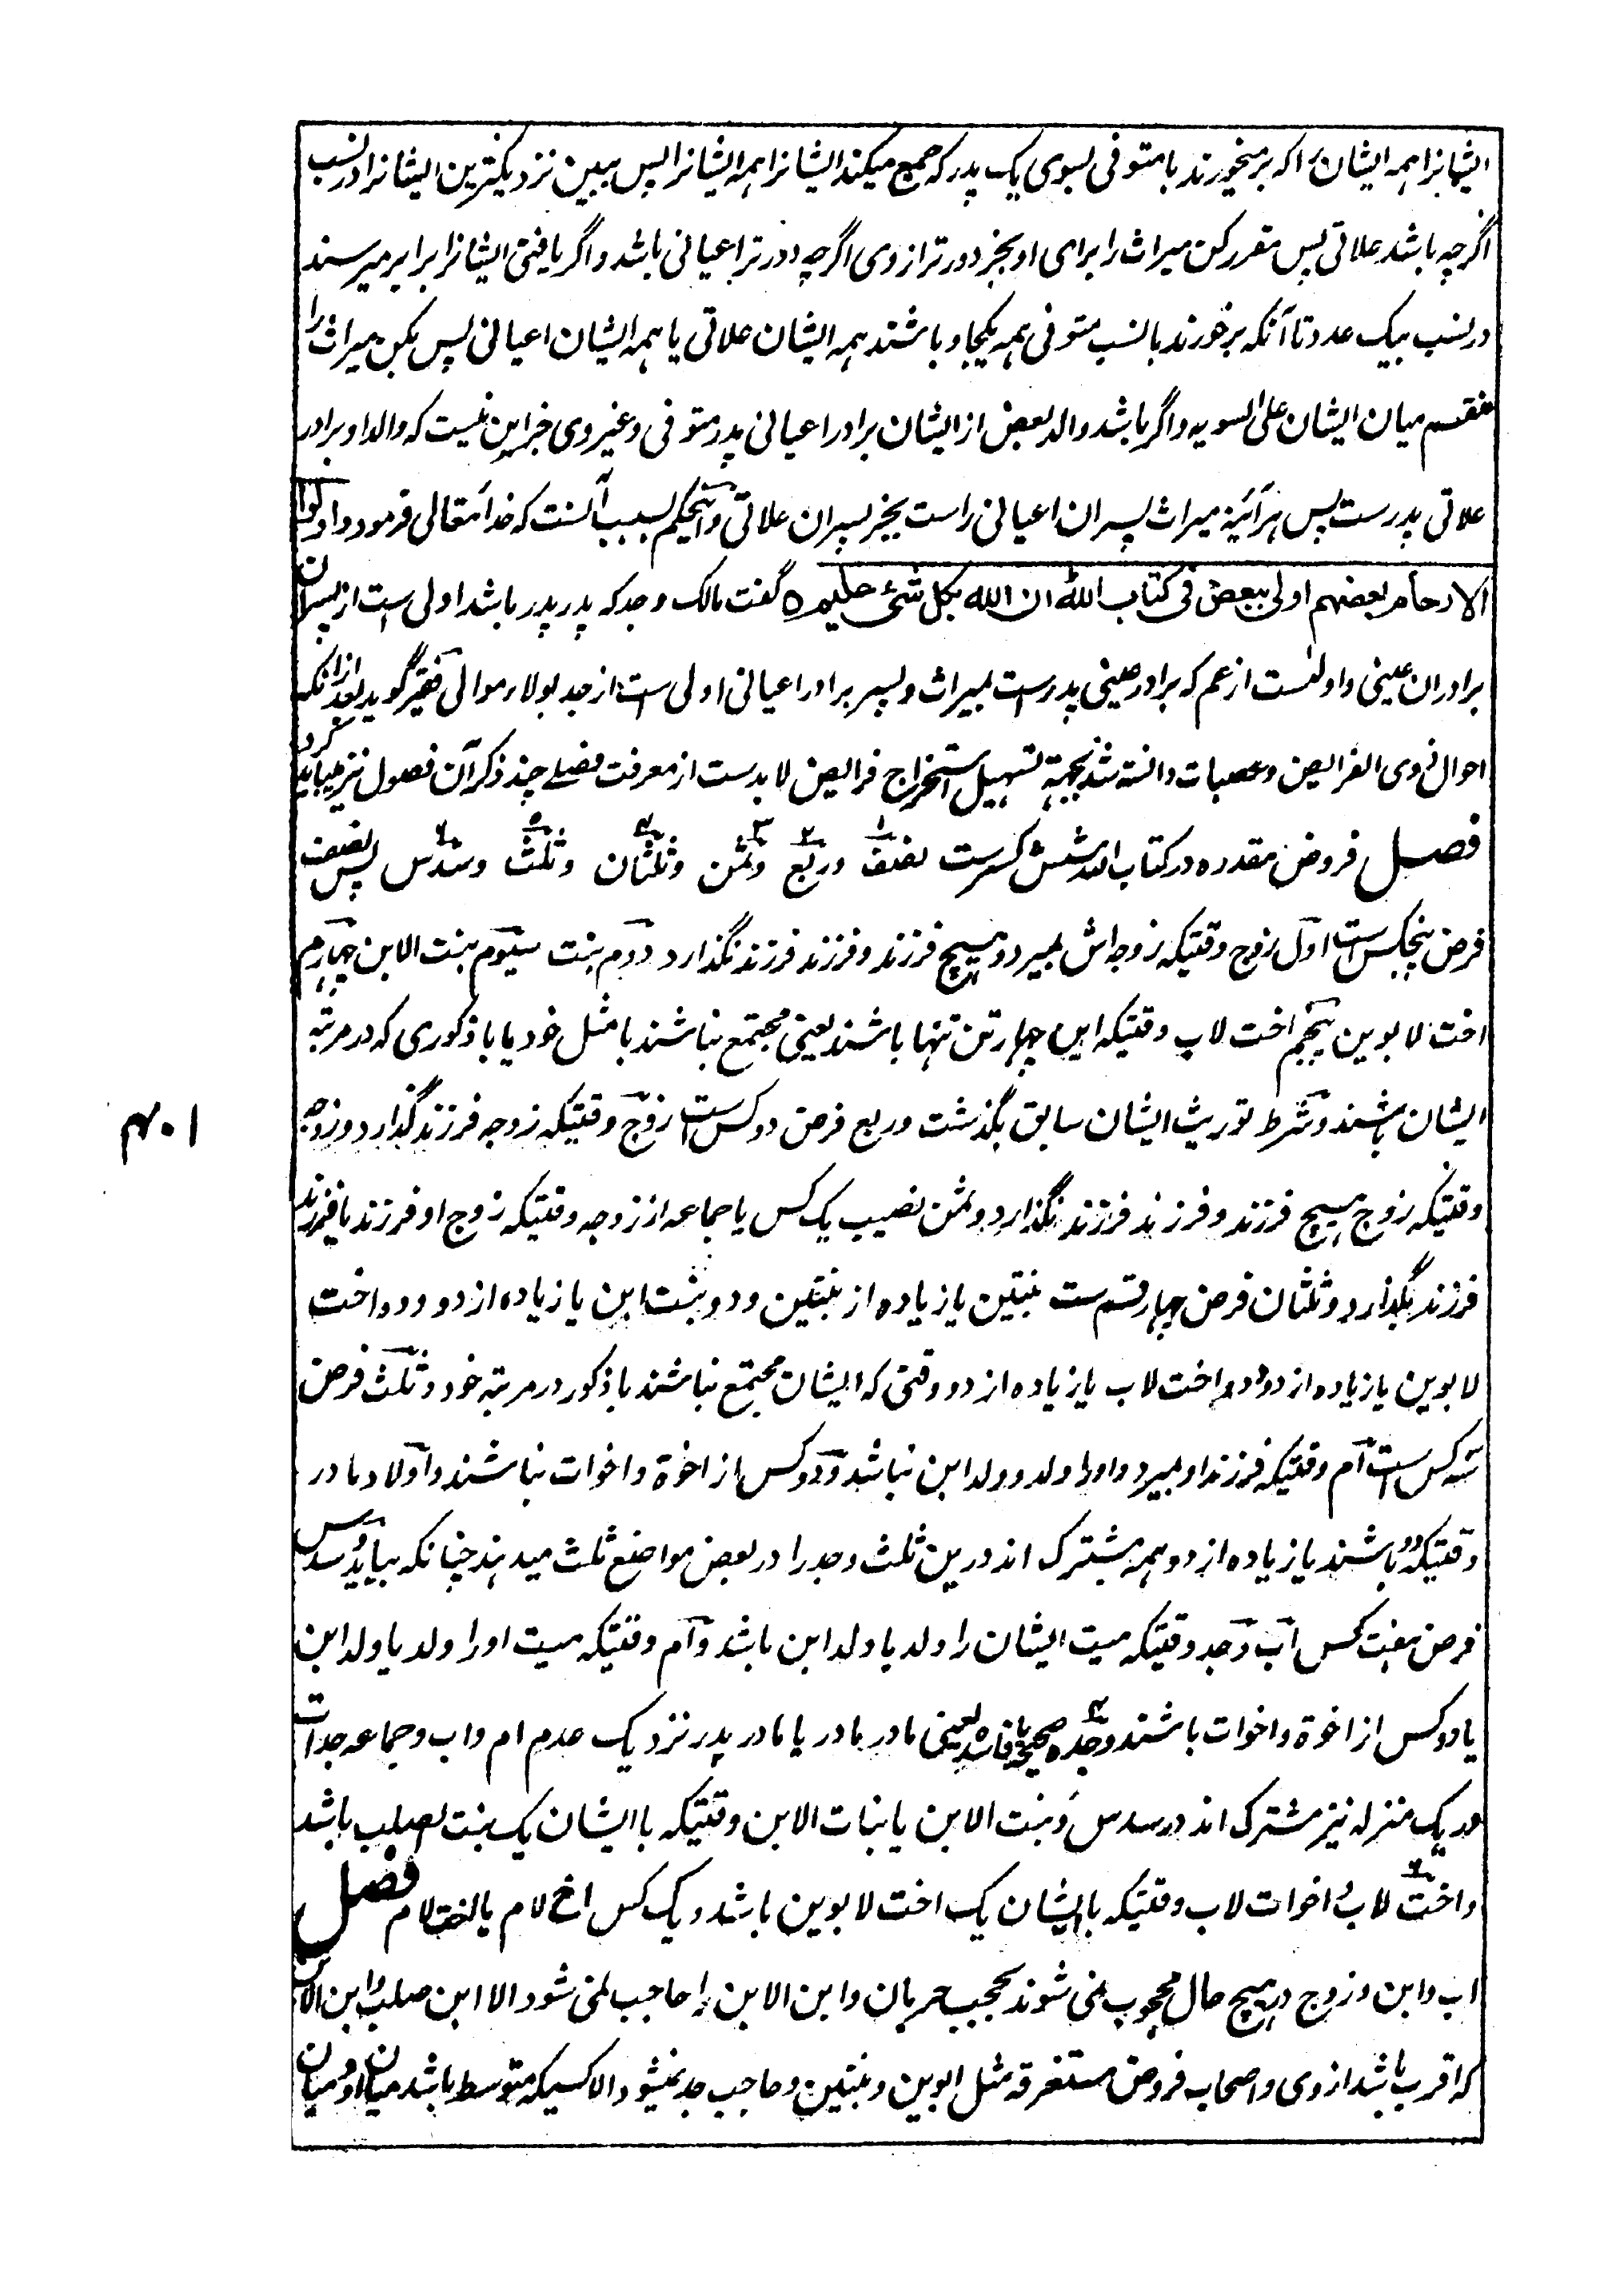 ایشانرا همه ایشان را که برمیخورند با متوفی بسوی یک پدر که جمع میکند ایشانرا همه ایشانرا پس ببین نزدیکترین ایشانرا در نسب
اگرچه باشد علاتی پس مقرر کن میراث را برای او بجز دورتر از وی اگرچه دورتر اعیانی باشد و اگر یافتی ایشانرا برابر میرسند
در نسب بیک عدد تا آنکه برخورند با نسب متوفی همه یکجا و باشند همه ایشان علاتی یا همه ایشان اعیانی پس بکن میراث را
منقسم میان ایشان علی السویه و اگر باشد والد بعض از ایشان برادر اعیانی پدر متوفی و غیر وی جز این نیست که والد او برادر
علاتی پدرست پس هر آئینه میراث پسران اعیانی راست بجز پسران علاتی و اینحکم بسبب آنست که خدا تعالی فرمود و اولوا
الارحام بعضهم اولی ببعض فی کتاب الله ان الله بکل شیء علیم ه گفت مالک و جد که پدر پدر باشد اولی ست از پسران
برادران عینی و اولیست از عم که برادر عینی پدرست بمیراث و پسر برادر اعیانی اولی ست از جد بولاء موالی فقیر گوید بعد از انکه
احوال ذوی الفرایض و عصبات دانسته شد بجهة تسهیل استخراج فرایض لابدست از معرفت فصلے چند ذکر آن فصول نیز میباید کرد
فصل فروض مقدره در کتاب الله شش کسرست نصف ۱ و ربع ۲ و ثمن ۳ و ثلثان ۴ و ثلث ۵ و سدس ۶ پس نصف
فرض پنجکس ست اول زوج وقتیکه زوجه اش بمیرد و هیچ فرزند و فرزند فرزند نگذارد دوم بنت سیوم بنت الابن چهارم
اخت لابوین پنجم اخت لاب وقتیکه این چهار تن تنها باشند یعنی مجتمع نباشند با مثل خود یا با ذکوری که در مرتبه
ایشان باشند و شرط توریث ایشان سابق بگذشت و ربع فرض دو کس ست زوج وقتیکه زوجه فرزند گذارد و زوجه
وقتیکه زوج هیچ فرزند و فرزند فرزند نگذارد و ثمن نصیب یک کس یا جماعه از زوجه وقتیکه زوج او فرزند یا فرزند
فرزند بگذارد و ثلثان فرض چهار قسم ست بنتین یا زیاده از بنتین و دو بنت ابن یا زیاده از دو و دو اخت
لابوین یا زیاده از دو و دو اخت لاب یا زیاده از دو وقتی که ایشان مجتمع نباشند با ذکور در مرتبه خود و ثلث فرض
سه کس ست ام وقتیکه فرزند او بمیرد و او را ولد و ولد ابن نباشد و دو کس از اخوة و اخوات نباشند و اولاد مادر
وقتیکه دو باشند یا زیاده از دو همه مشترک اند درین ثلث و جد را در بعض مواضع ثلث میدهند چنانکه بیاید و سدس
فرض هفت کس اب و جد وقتیکه میت ایشان را ولد یا ولد ابن باشد و ام وقتیکه میت او را ولد یا ولد ابن
یا دو کس از اخوة و اخوات باشند و جده ۴ صحیحه یا فاسده یعنی مادر مادر یا مادر پدر نزدیک عدم ام و اب و جماعه جدات
در یک منزله نیز مشترک اند در سدس و بنت الابن یا بنات الابن وقتیکه با ایشان یک بنت لصلب باشد
و اخت ۶ لاب و اخوات لاب وقتیکه با ایشان یک اخت لابوین باشد و یک کس اخ لام یا اخت لام فصل
اب و ابن و زوج در هیچ حال محجوب نمی شوند بحجب حرمان و ابن الابن را حاجب نمی شود الا ابن صلب و ابن الابن
که اقرب باشد از وی و اصحاب فروض مستغرقه مثل ابوین و بنتین و حاجب جد نمیشود الا کسیکه متوسط باشد میان او و میان
۴۰۱